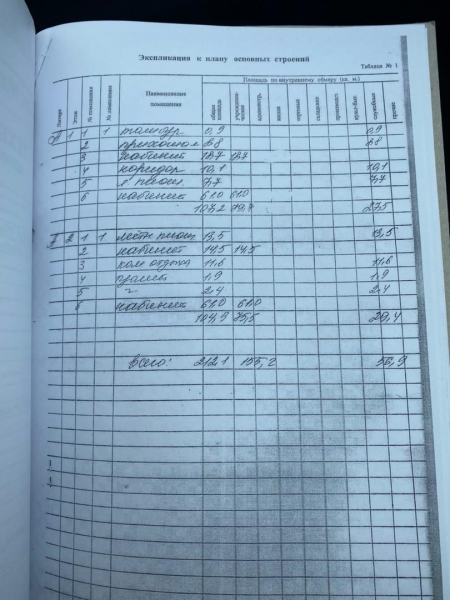 Экспликация к плану основных строений
Таблица № 1
Литера Этаж № помещения № помещения Наименование помещения Площадь по внутреннему обмеру (кв. м.)
общая площадь учрежден- ческая жилая торговая складская служебная прочие
1 1 1 тамбур 0,9 0,9
2 8,8 8,8
3 кабинет 18,7 18,7
4 коридор 10,1 10,1
5 7,7 7,7
6 кабинет 61.0 61.0
107,2 79,7 27,5
2 1 1 13,5 13,5
2 кабинет 14,5 14,5
3 ком отдыха 11,6 11,6
4 туалет 1,9 1,9
5 " 2,4 2,4
6 кабинет 61.0 61.0
104,9 75,5 29,4
всего: 212.1 155,2 56,9